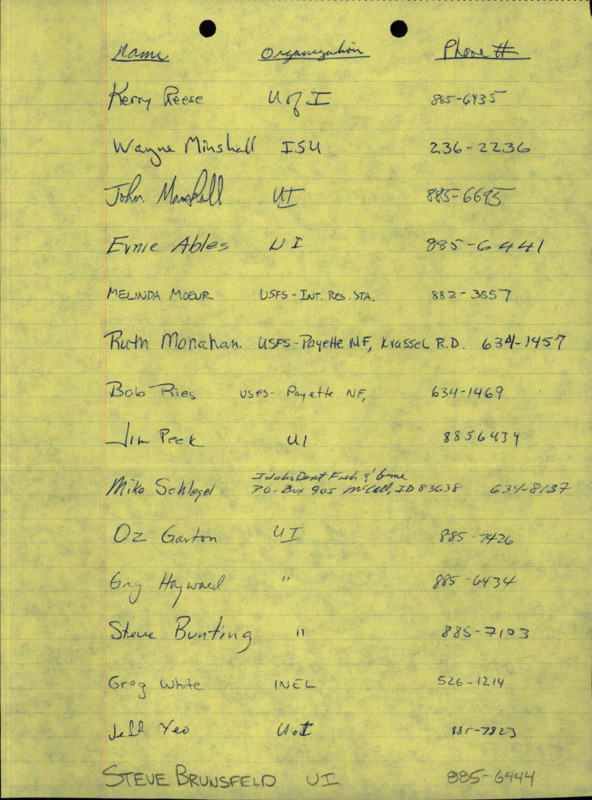 Name Organization Phone #
Kerry Reese U of I 885-6435
Wayne Minshall ISU 236-2236
John Marshall UI 885-6695
Ernie Ables UI 885-6441
MELINDA MOEUR USFS-INT. RES. STA. 882-3557
Ruth Monahan. USFS-Payette NF, Krassel R.D. 634-1457
Bob Ries USFS- Payette NF, 634-1469
Jim Peek UI 8856434
Mike Schlegel Idaho Dept Fish & Game
P.O. Box 905 McCall, ID 83638 634-8137
Oz Garton UI 885-7426
Greg Hayward " 885-6434
Steve Bunting " 885-7103
Greg White INEL 526-1214
Jeff Yeo U.I 885-7823
STEVE BRUNSFELD UI 885-6444